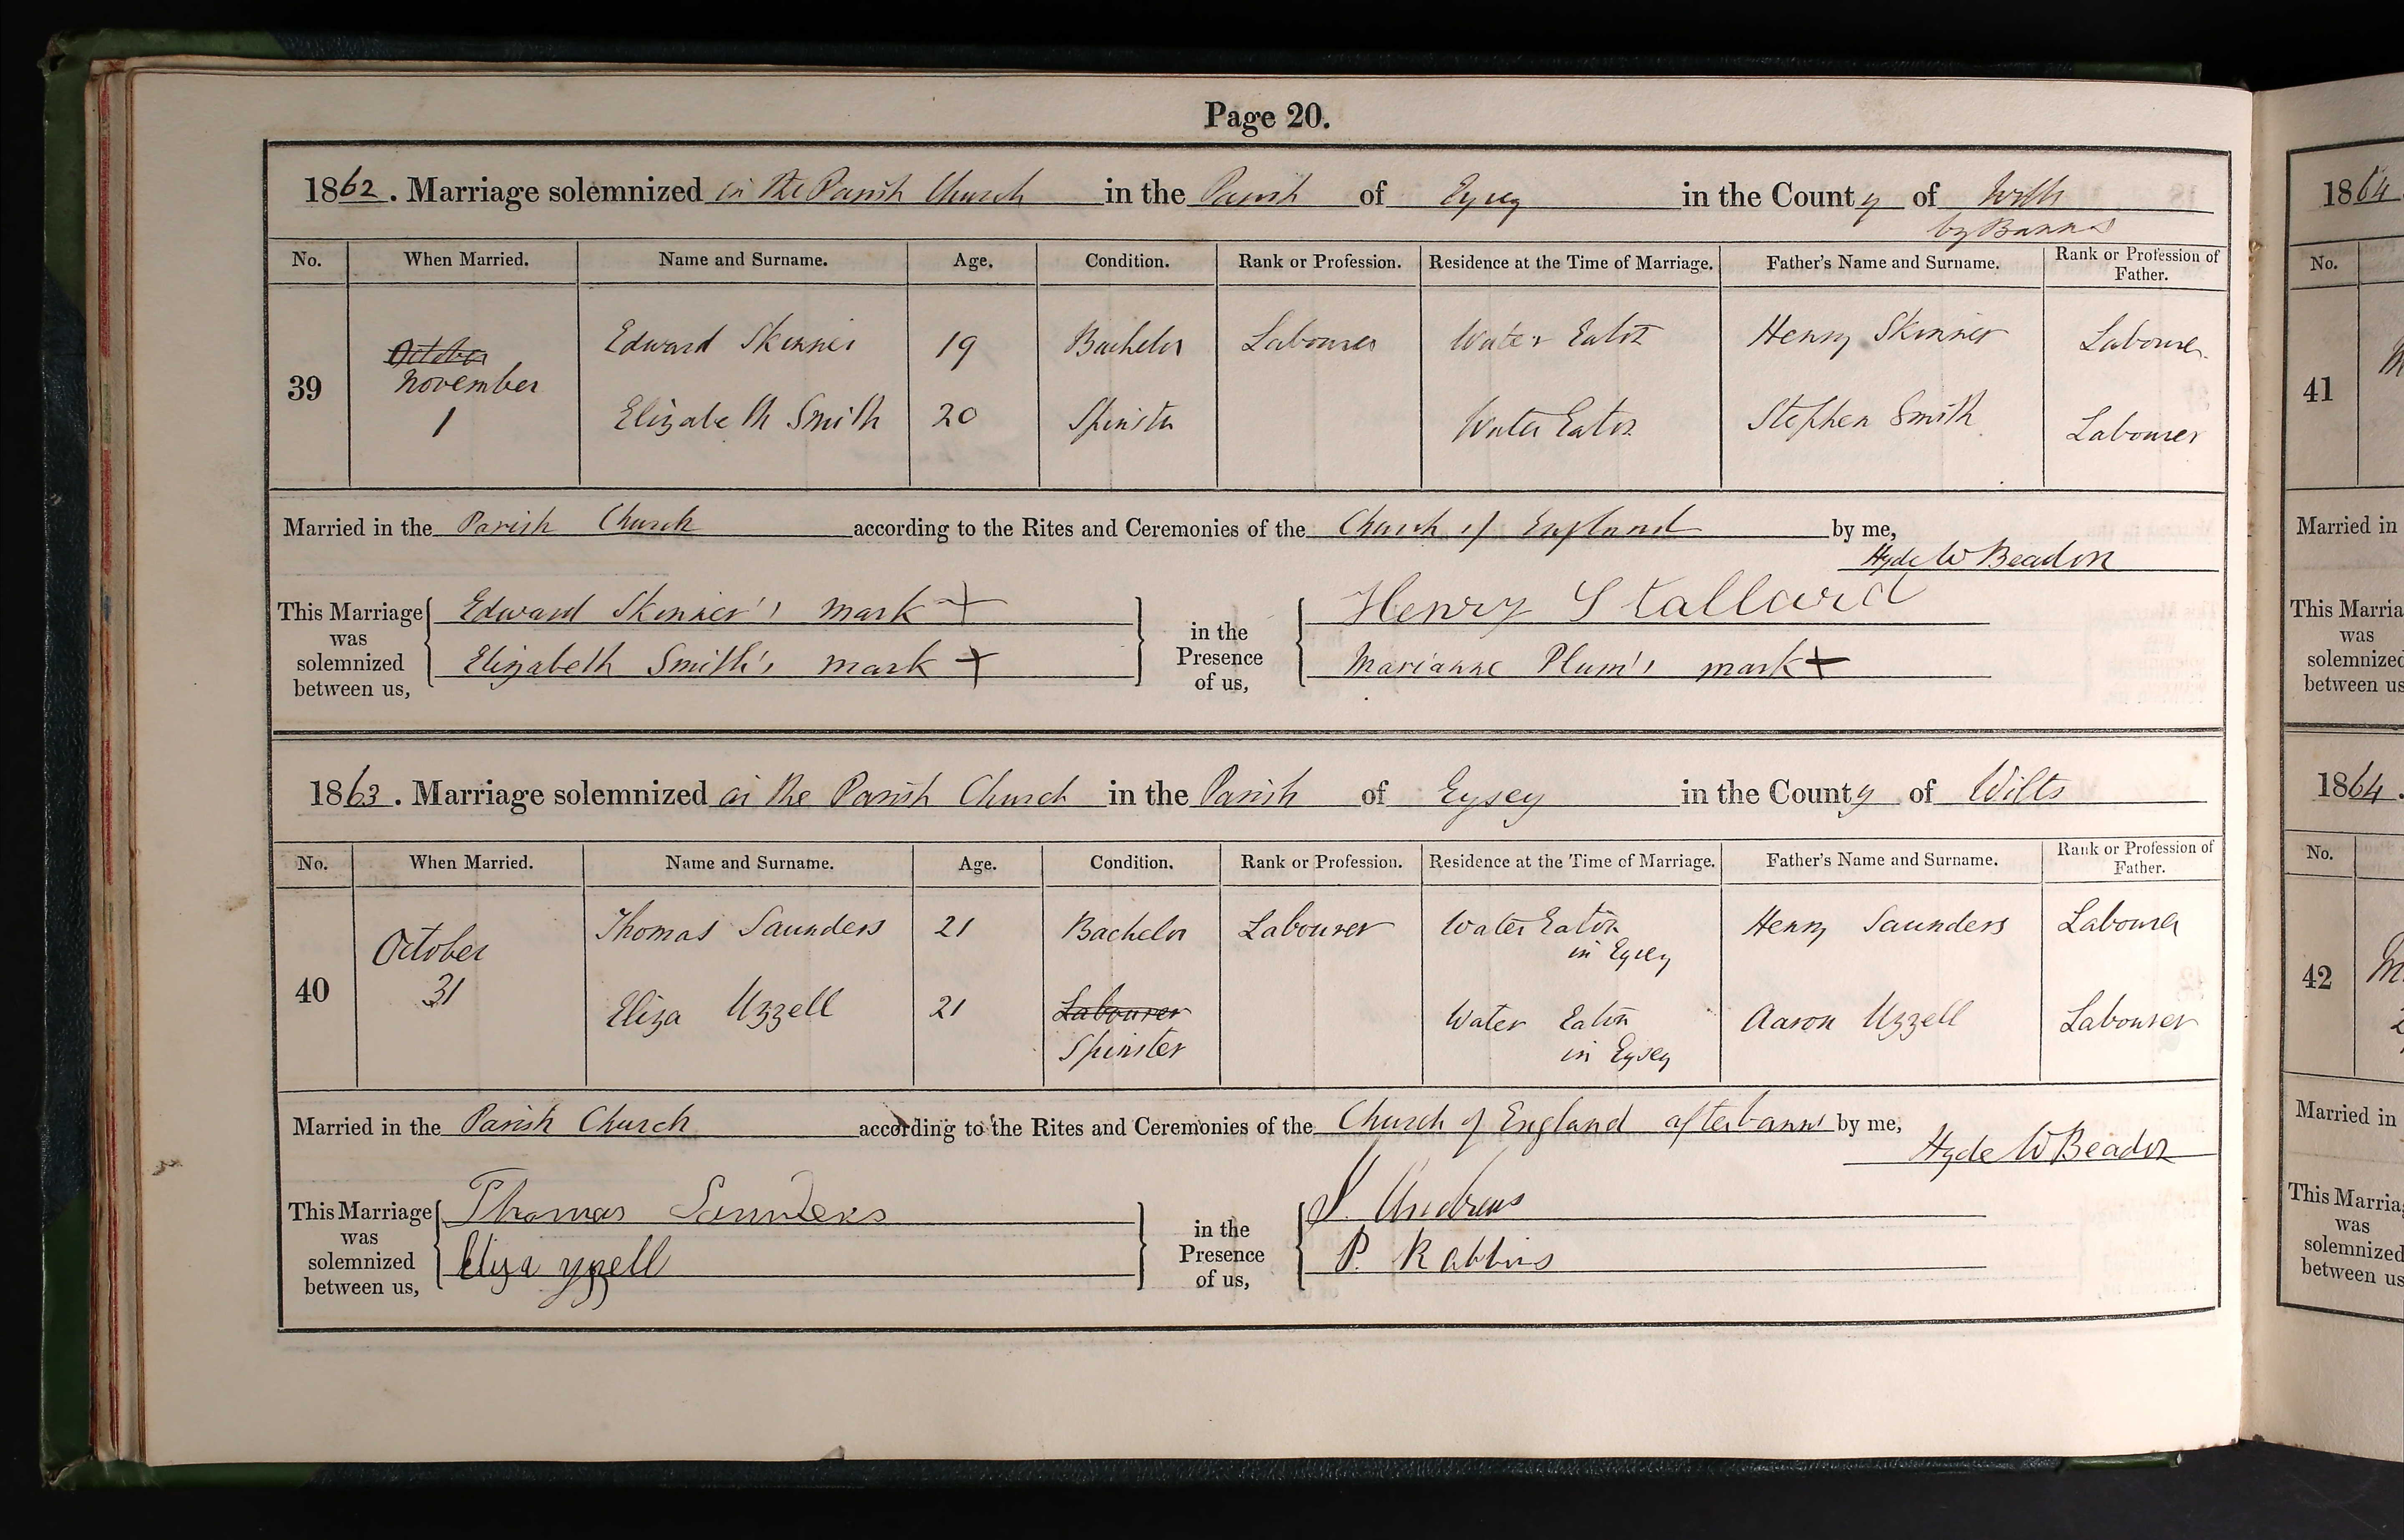 Page 20.
1862. Marriage solemnized in the Parish Church in the Parish of Eysey in the County of Wilts
by Banns
No. When Married. Name and Surname. Age. Condition. Rank or Profession. Residence at the Time of Marriage. Father's Name and Surname. Rank or Profession of Father.
39 October November 1 Edward Skinner 19 Bachelor Labourer Water Eaton Henry Skinner Labourer
Elizabeth Smith 20 Spinster Water Eaton Stephen Smith Labourer
Married in the Parish Church according to the Rites and Ceremonies of the Church of England by me,
Hyde W Beadon
This Marriage was solemnized between us, Edward Skinner's mark + in the Presence of us, Henry Stallard
Elizabeth Smith's mark + Marianne Plum's mark +
1863. Marriage solemnized in the Parish Church in the Parish of Eysey in the County of Wilts
No. When Married. Name and Surname. Age. Condition. Rank or Profession. Residence at the Time of Marriage. Father's Name and Surname. Rank or Profession of Father.
40 October 31 Thomas Saunders 21 Bachelor Labourer Water Eaton in Eysey Henry Saunders Labourer
Eliza Uzzell 21 Labourer Spinster Water Eaton in Eysey Aaron Uzzell Labourer
Married in the Parish Church according to the Rites and Ceremonies of the Church of England after banns by me,
Hyde W Beadon
This Marriage was solemnized between us, Thomas Saunders in the Presence of us, S. Andrews
Eliza yzzell P. Robbins
1864
No.
41
Married in
This Marria
was
solemnized
between us
1864.
No.
42
Married in
This Marria
was
solemnized
between us